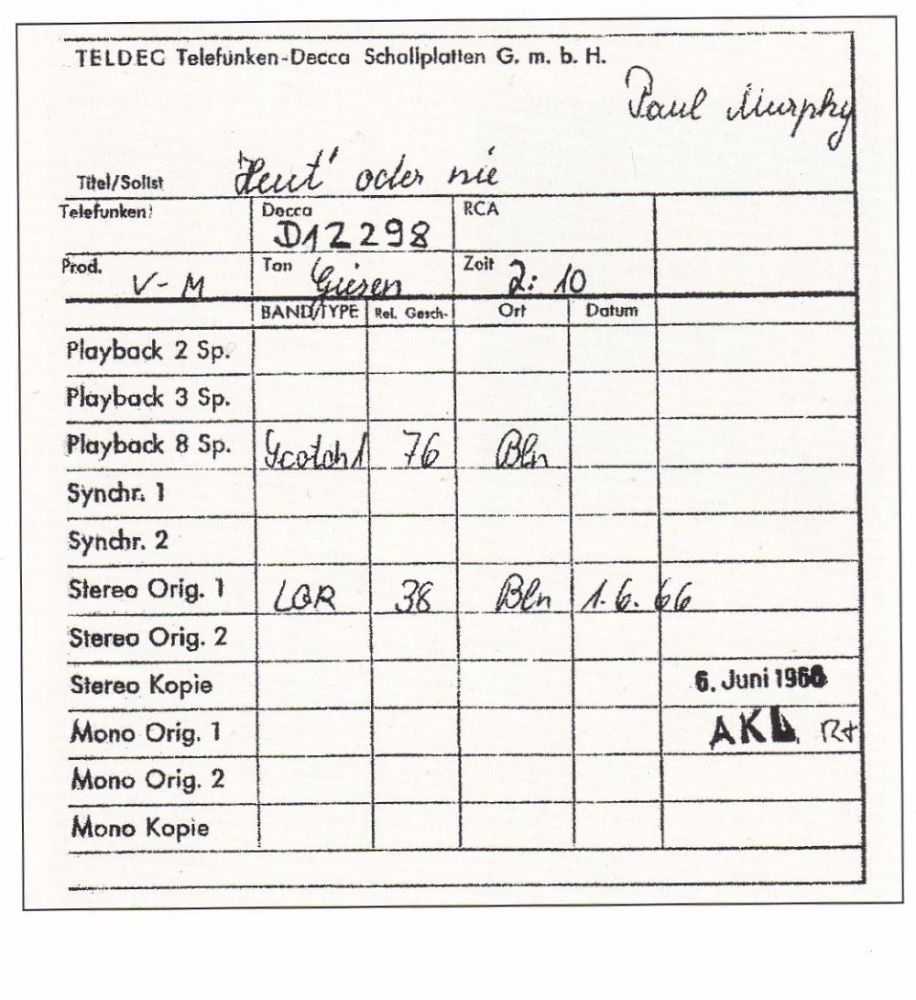 TELDEC Telefunken-Decca Schallplatten G. m. b. H.
Paul Murphy
Titel/Solist Heut' oder nie
Telefunken: Decca RCA
D12298
Prod. V-M Ton Giesen Zeit 2:10
BAND/TYPE Rel. Gesch- Ort Datum
Playback 2 Sp.
Playback 3 Sp.
Playback 8 Sp. Scotch 1 76 Bln
Synchr. 1
Synchr. 2
Stereo Orig. 1 LGR 38 Bln 1.6.66
Stereo Orig. 2
Stereo Kopie 6. Juni 1966
Mono Orig. 1
Mono Orig. 2
Mono Kopie